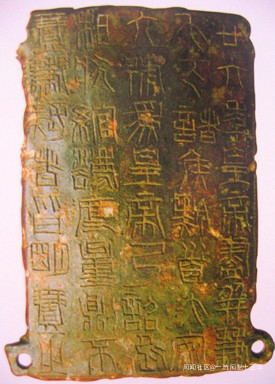 廿六年皇帝盡并兼
天下諸矦黔首大安
立號為皇帝乃詔丞
相狀綰灋度量則不
壹歉疑者皆明壹之